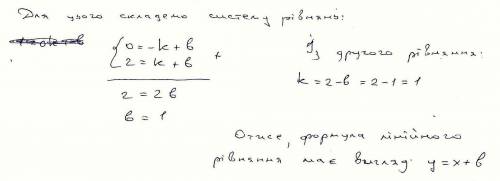 Для цього складемо систему рівнянь:
{0=-k+b
2=k+b +
2=2b
b=1
Із другого рівняння:
k=2-b=2-1=1
Отже, формула лінійного
рівняння має вигляд: y=x+b